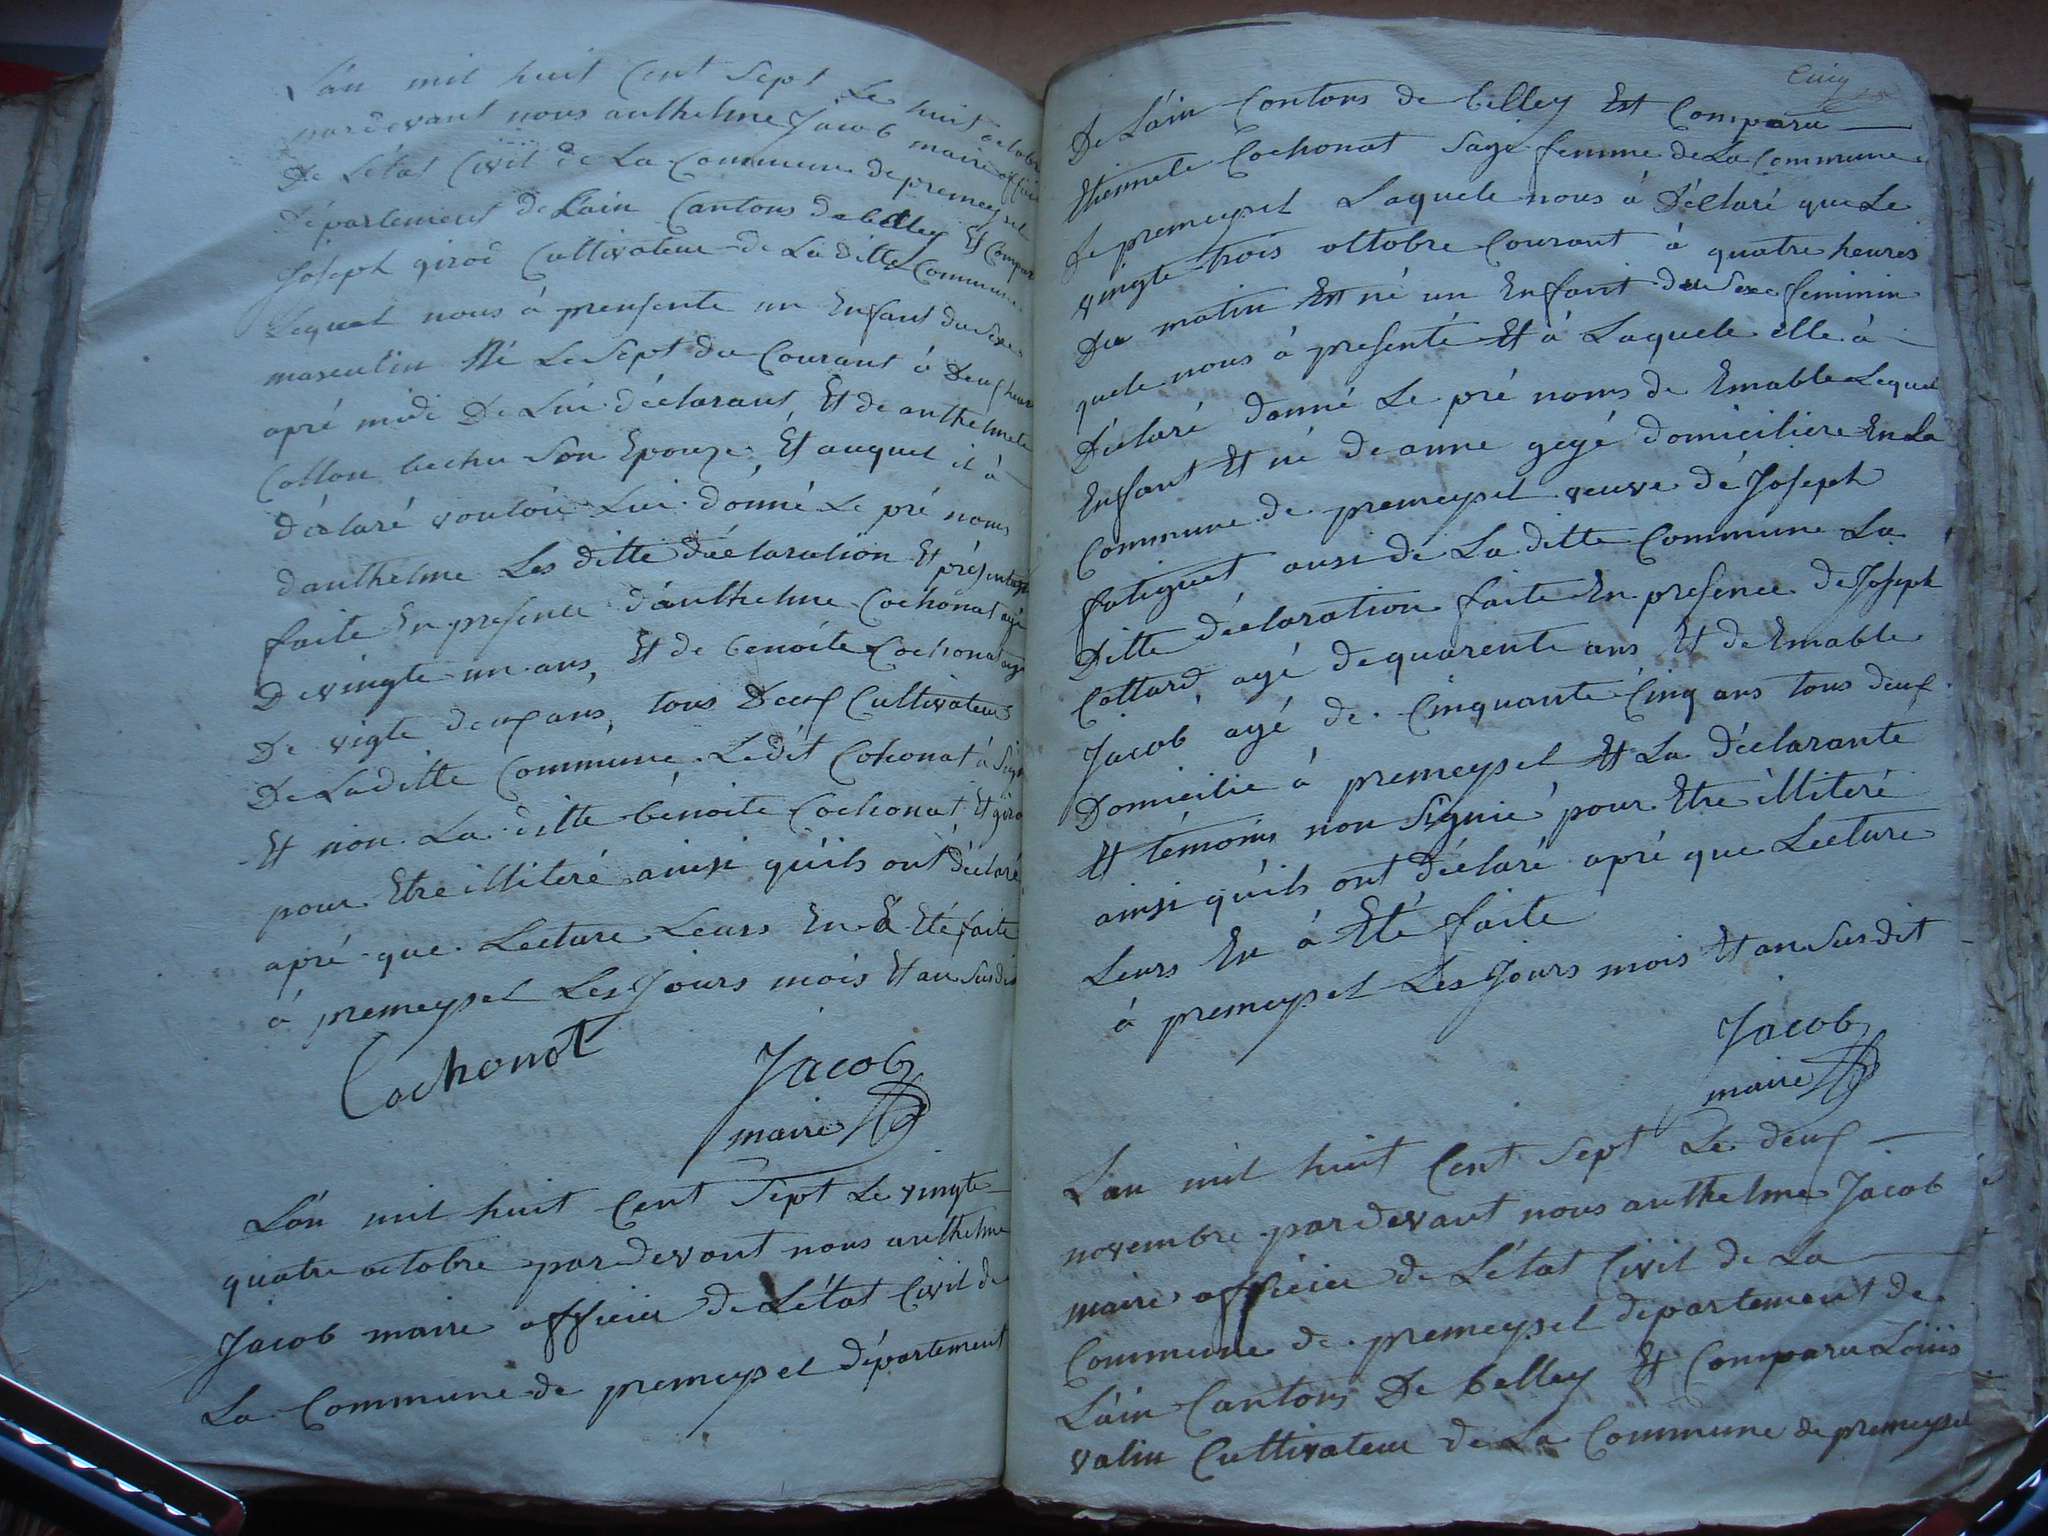 L'an mil huit Cent Sept Le huit octobre
pardevant nous anthelme Jacob maire officie
De L'état Civil de La Commune de premeysel
Département de L'ain Cantons de belley Et Compar
Joseph girod Cultivateur de La ditte Commune
Lequel nous à prensente un Enfant du Sexe
masculin Né Le Sept du Courant à Deux heur
apré midi De Lui déclarant, Et de anthelmete
Collon bechu Son Epouze, Et auquel il à
déclaré vouloir Lui donné Le pré noms
danthelme Les ditte déclaration Et présentatio
faite En presence d'anthelme Cochonat agé
De vingte un ans, Et de benoite Cochonat agé
De vigte deux ans, tous Deux Cultivateurs
De La ditte Commune. Ledit Cohonat à Sign
Et non La ditte bénoite Cochonat Et giro
pour Etre illiteré ainsi qu'ils ont déclaré
apré que Lecture Leurs En à Eté faite
à premeysel Les Jours mois Et an Susdit
Cochonat Jacob
maire
L'an mil huit Cent Sept Le vingte
quatre octobre pardevant nous anthelme
Jacob maire officier de L'état Civil de
La Commune de premeysel département
Cinq
De L'ain Contons de belley Est Comparu
Etiennete Cochonat Sage femme de La Commune
de premeysel Laquele nous à Déclaré que Le
vingte trois ottobre Courant à quatre heures
Du matin Est né un Enfant du Sexe feminin
quele nous à presenté Et à Laquele elle à
Déclaré donné Le pré noms de Emable Lequel
Enfant Et né de anne gegé domiciliere En La
Commune de premeysel veuve dé Joseph
fatiguet ausi de La ditte Commune La
Ditte déclaration faite En presence de Joseph
Cottard, agé de quarente ans Et de Emable
Jacob agé de Cinquante Cinq ans tous deux
Domicilié à premeysel Et La Déclarante
Et témoins non Signié pour Etre illiteré
ainsi qu'ils ont déclaré apré que Lecture
Leurs En à Eté faite
à premeysel Les Jours mois Et an Susdit
Jacob
maire
L'an mil huit Cent Sept Le deux
novembre pardevant nous anthelme Jacob
maire officier de L'état Civil de La
Commune de premeysel departement de
L'ain Cantons De belley Et Comparu Loüis
valin Cultivateur de La Commune de premeysel